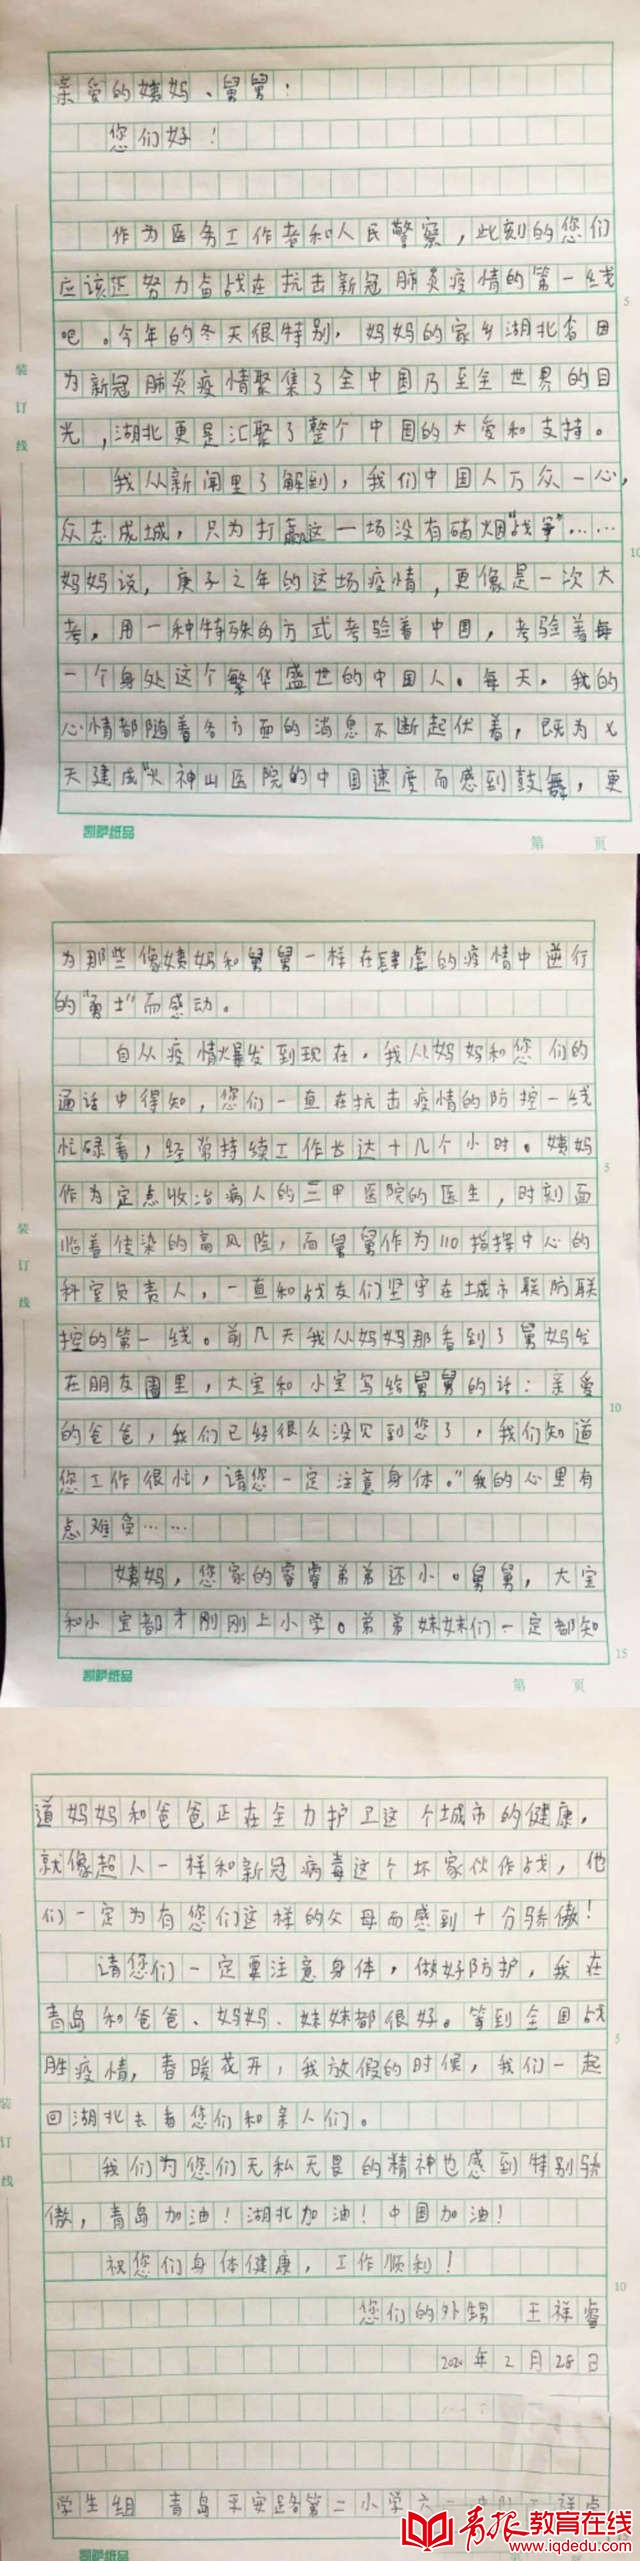 亲爱的姨妈、舅舅：
您们好！
作为医务工作者和人民警察，此刻的您们
应该正努力奋战在抗击新冠肺炎疫情的第一线
吧。今年的冬天很特别，妈妈的家乡湖北省因
为新冠肺炎疫情聚集了全中国乃至全世界的目
光，湖北更是汇聚了整个中国的大爱和支持。
我从新闻里了解到，我们中国人万众一心，
众志成城，只为打赢这一场没有硝烟"战争"……
妈妈说，庚子之年的这场疫情，更像是一次大
考，用一种特殊的方式考验着中国，考验着每
一个身处这个繁华盛世的中国人。每天，我的
心情都随着各方面的消息不断起伏着，既为
天建成"火神山医院的中国速度而感到鼓舞，更
凯萨纸品
第 页
为那些像姨妈和舅舅一样在肆虐的疫情中逆行
的"勇士"而感动。
自从疫情爆发到现在，我从妈妈和您们的
通话中得知，您们一直在抗击疫情的防控一线
忙碌着，经常持续工作长达十几个小时。姨妈
作为定点收治病人的三甲医院的医生，时刻面
临着传染的高风险，而舅舅作为110指挥中心的
科室负责人，一直和战友们坚守在城市联防联
控的第一线。前几天我从妈妈那看到了舅妈发
在朋友圈里，大宝和小宝写给舅舅的话：亲爱
的爸爸，我们已经很久没见到您了，我们知道
您工作很忙，请您一定注意身体。"我的心里有
点难受……
姨妈，您家的睿睿弟弟还小。舅舅，大宝
和小宝都才刚刚上小学。弟弟妹妹们一定都知
凯萨纸品
第 页
道妈妈和爸爸正在全力护卫这个城市的健康，
就像超人一样和新冠病毒这个坏家伙作战，他
们一定为有您们这样的父母而感到十分骄傲！
请您们一定要注意身体，做好防护，我在
青岛和爸爸、妈妈、妹妹都很好。等到全国战
胜疫情，春暖花开，我放假的时候，我们一起
回湖北去看您们和亲人们。
我们为您们无私无畏的精神也感到特别骄
傲，青岛加油！湖北加油！中国加油！
祝您们身体健康，工作顺利！
您们的外甥 王祥睿
2020年2月28日
学生组 青岛平安路第二小学六
凯萨纸品
装订线
装订线
装订线
5
10
5
10
15
5
10
青报教育在线
www.iqdedu.com